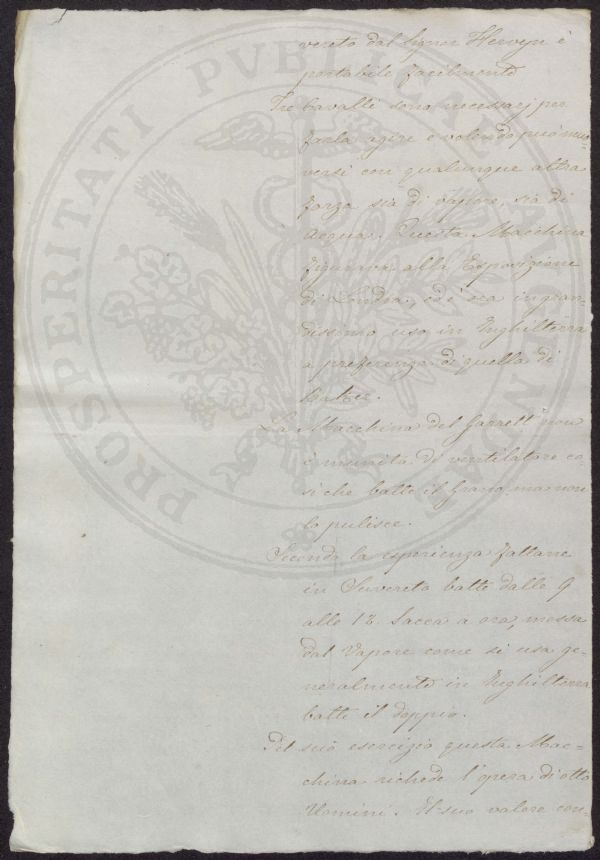 PROSPERITATI PUBLICAE AUGENDAE
vereto dal Signor Hervyn è
portabile facilmente
Tre Cavalli sono necessarj per
farla agire e volendo può muo-
versi con qualunque altra
forza sia di vapore, sia di
acqua. Questa Macchina
figurava alla Esposizione
di Londra, ed è ora in gran-
dissimo uso in Inghilterra
a preferenza di quella di
La Macchina del Garrett non
è munita di ventilatore co-
si che batte il Grano, ma non
lo pulisce.
Secondo la esperienza fattane
in Suvereto batte dalle 9
alle 12. Sacca a ora, mossa
dal Vapore come si usa ge-
neralmente in Inghilterra
batte il doppio.
Pel suo esercizio questa Mac-
china richede l'opera di otto
Uomini. Il suo valore con-